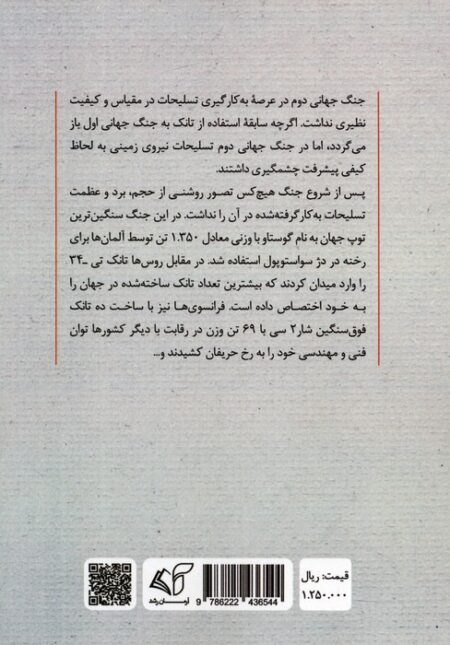 جنگ جهانی دوم در عرصهٔ به‌کارگیری تسلیحات در مقیاس و کیفیت
نظیری نداشت. اگرچه سابقهٔ استفاده از تانک به جنگ جهانی اول باز
می‌گردد، اما در جنگ جهانی دوم تسلیحات نیروی زمینی به لحاظ
کیفی پیشرفت چشمگیری داشتند.
پس از شروع جنگ هیچ‌کس تصور روشنی از حجم، برد و عظمت
تسلیحات به‌کارگرفته‌شده در آن را نداشت. در این جنگ سنگین‌ترین
توپ جهان به نام گوستاو با وزنی معادل ۱.۳۵۰ تن توسط آلمان‌ها برای
رخنه در دژ سواستوپول استفاده شد. در مقابل روس‌ها تانک تی ـ۳۴
را وارد میدان کردند که بیشترین تعداد تانک ساخته‌شده در جهان را
به خود اختصاص داده است. فرانسوی‌ها نیز با ساخت ده تانک
فوق‌سنگین شار۲ سی با ۶۹ تن وزن در رقابت با دیگر کشورها توان
فنی و مهندسی خود را به رخ حریفان کشیدند و...
آرمان رشد
9 786222 436544
قیمت: ریال
۱.۲۵۰.۰۰۰